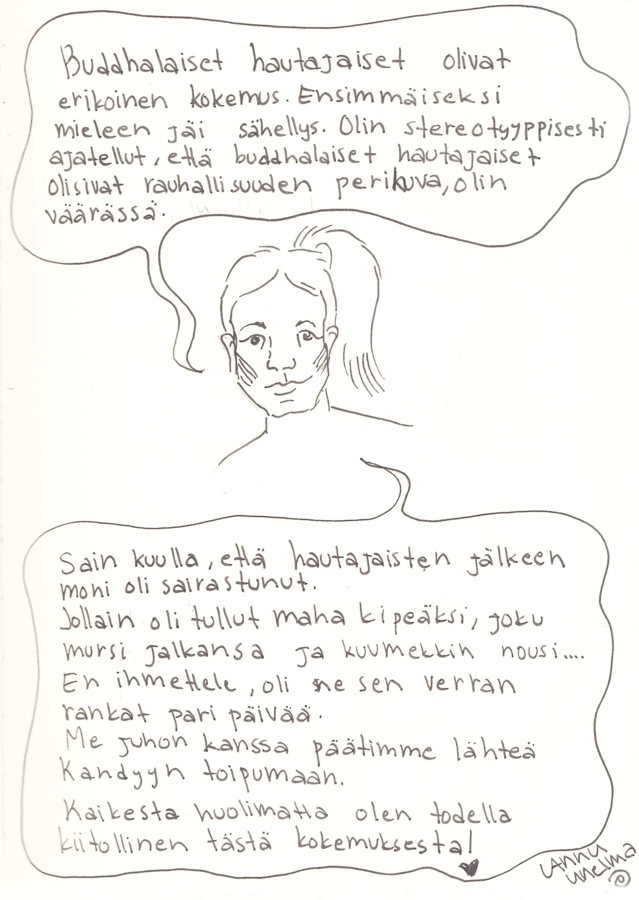 Buddhalaiset hautajaiset olivat
erikoinen kokemus. Ensimmäiseksi
mieleen jäi sähellys. Olin stereotyyppisesti
ajatellut, että buddhalaiset hautajaiset
olisivat rauhallisuuden perikuva, olin
väärässä.
Sain kuulla, että hautajaisten jälkeen
moni oli sairastunut.
Jollain oli tullut maha kipeäksi, joku
mursi jalkansa ja kuumekkin nousi....
En ihmettele, oli ne sen verran
rankat pari päivää.
Me Juhon kanssa päätimme lähteä
Kandyyn toipumaan.
Kaikesta huolimatta olen todella
kiitollinen tästä kokemuksesta!
Annu